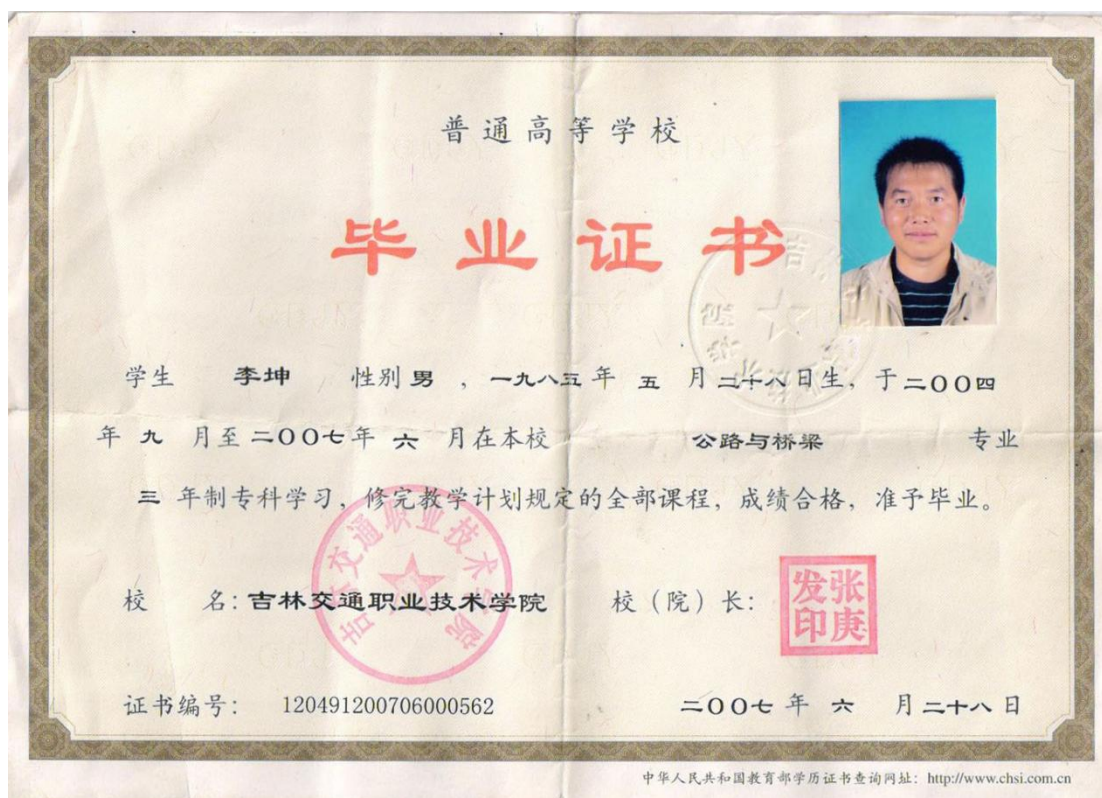 普通高等学校
毕业证书
学生 李坤 性别 男 ，一九八五年 五 月二十八日生，于二〇〇四
年 九 月至二〇〇七年 六 月在本校 公路与桥梁 专业
三 年制专科学习，修完教学计划规定的全部课程，成绩合格，准予毕业。
校 名：吉林交通职业技术学院 校（院）长：
吉林交通职业技术学院
张庚发印
证书编号： 120491200706000562 二〇〇七年 六 月二十八日
中华人民共和国教育部学历证书查询网址：http://www.chsi.com.cn